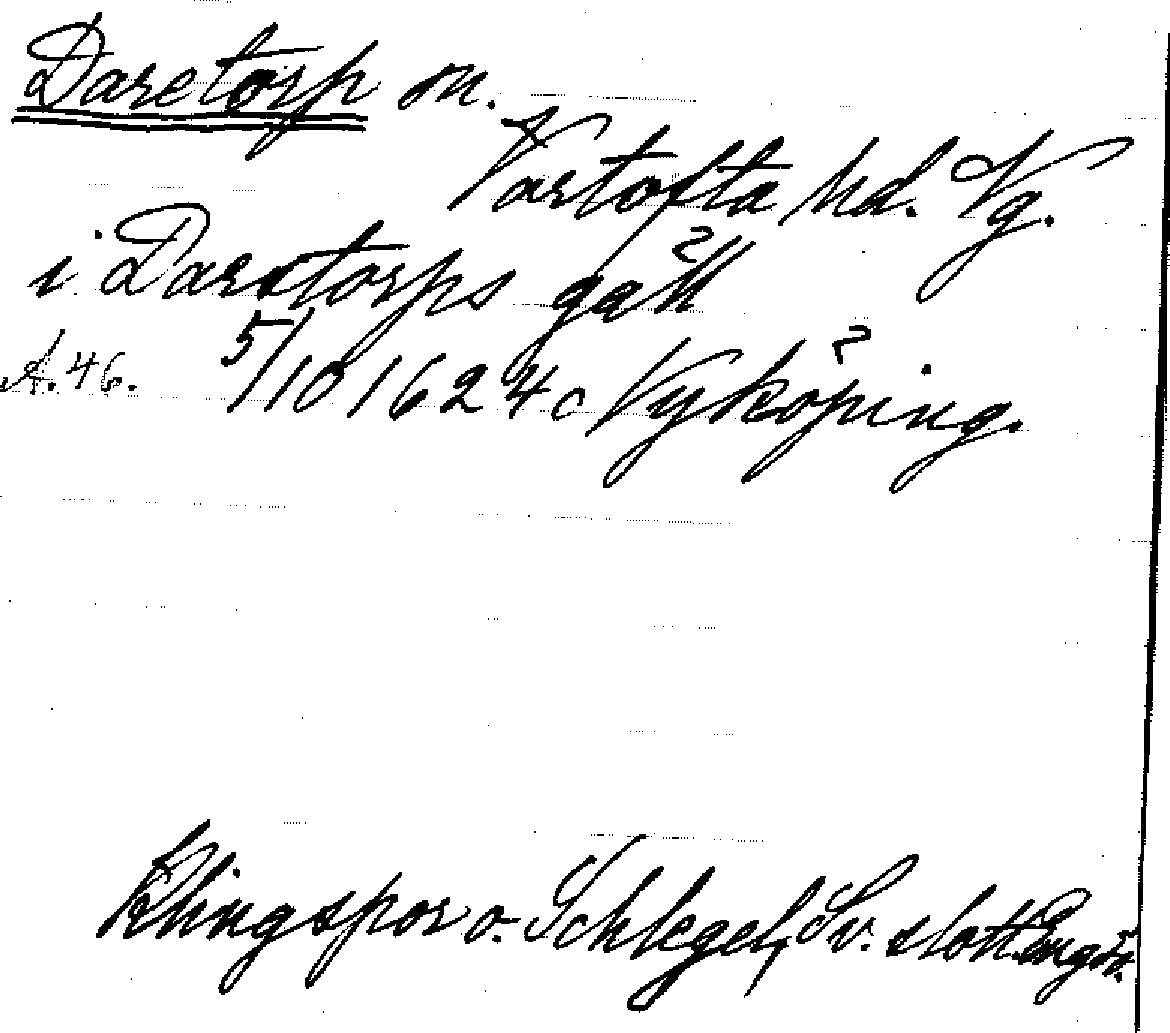 Daretorp sn.
Vartofta hd. Vg.
i Daretorps gäll
A. 46. 5/10 1624 Nyköping.
Klingspor o. Schlegel, Sv. slott. Engsö.